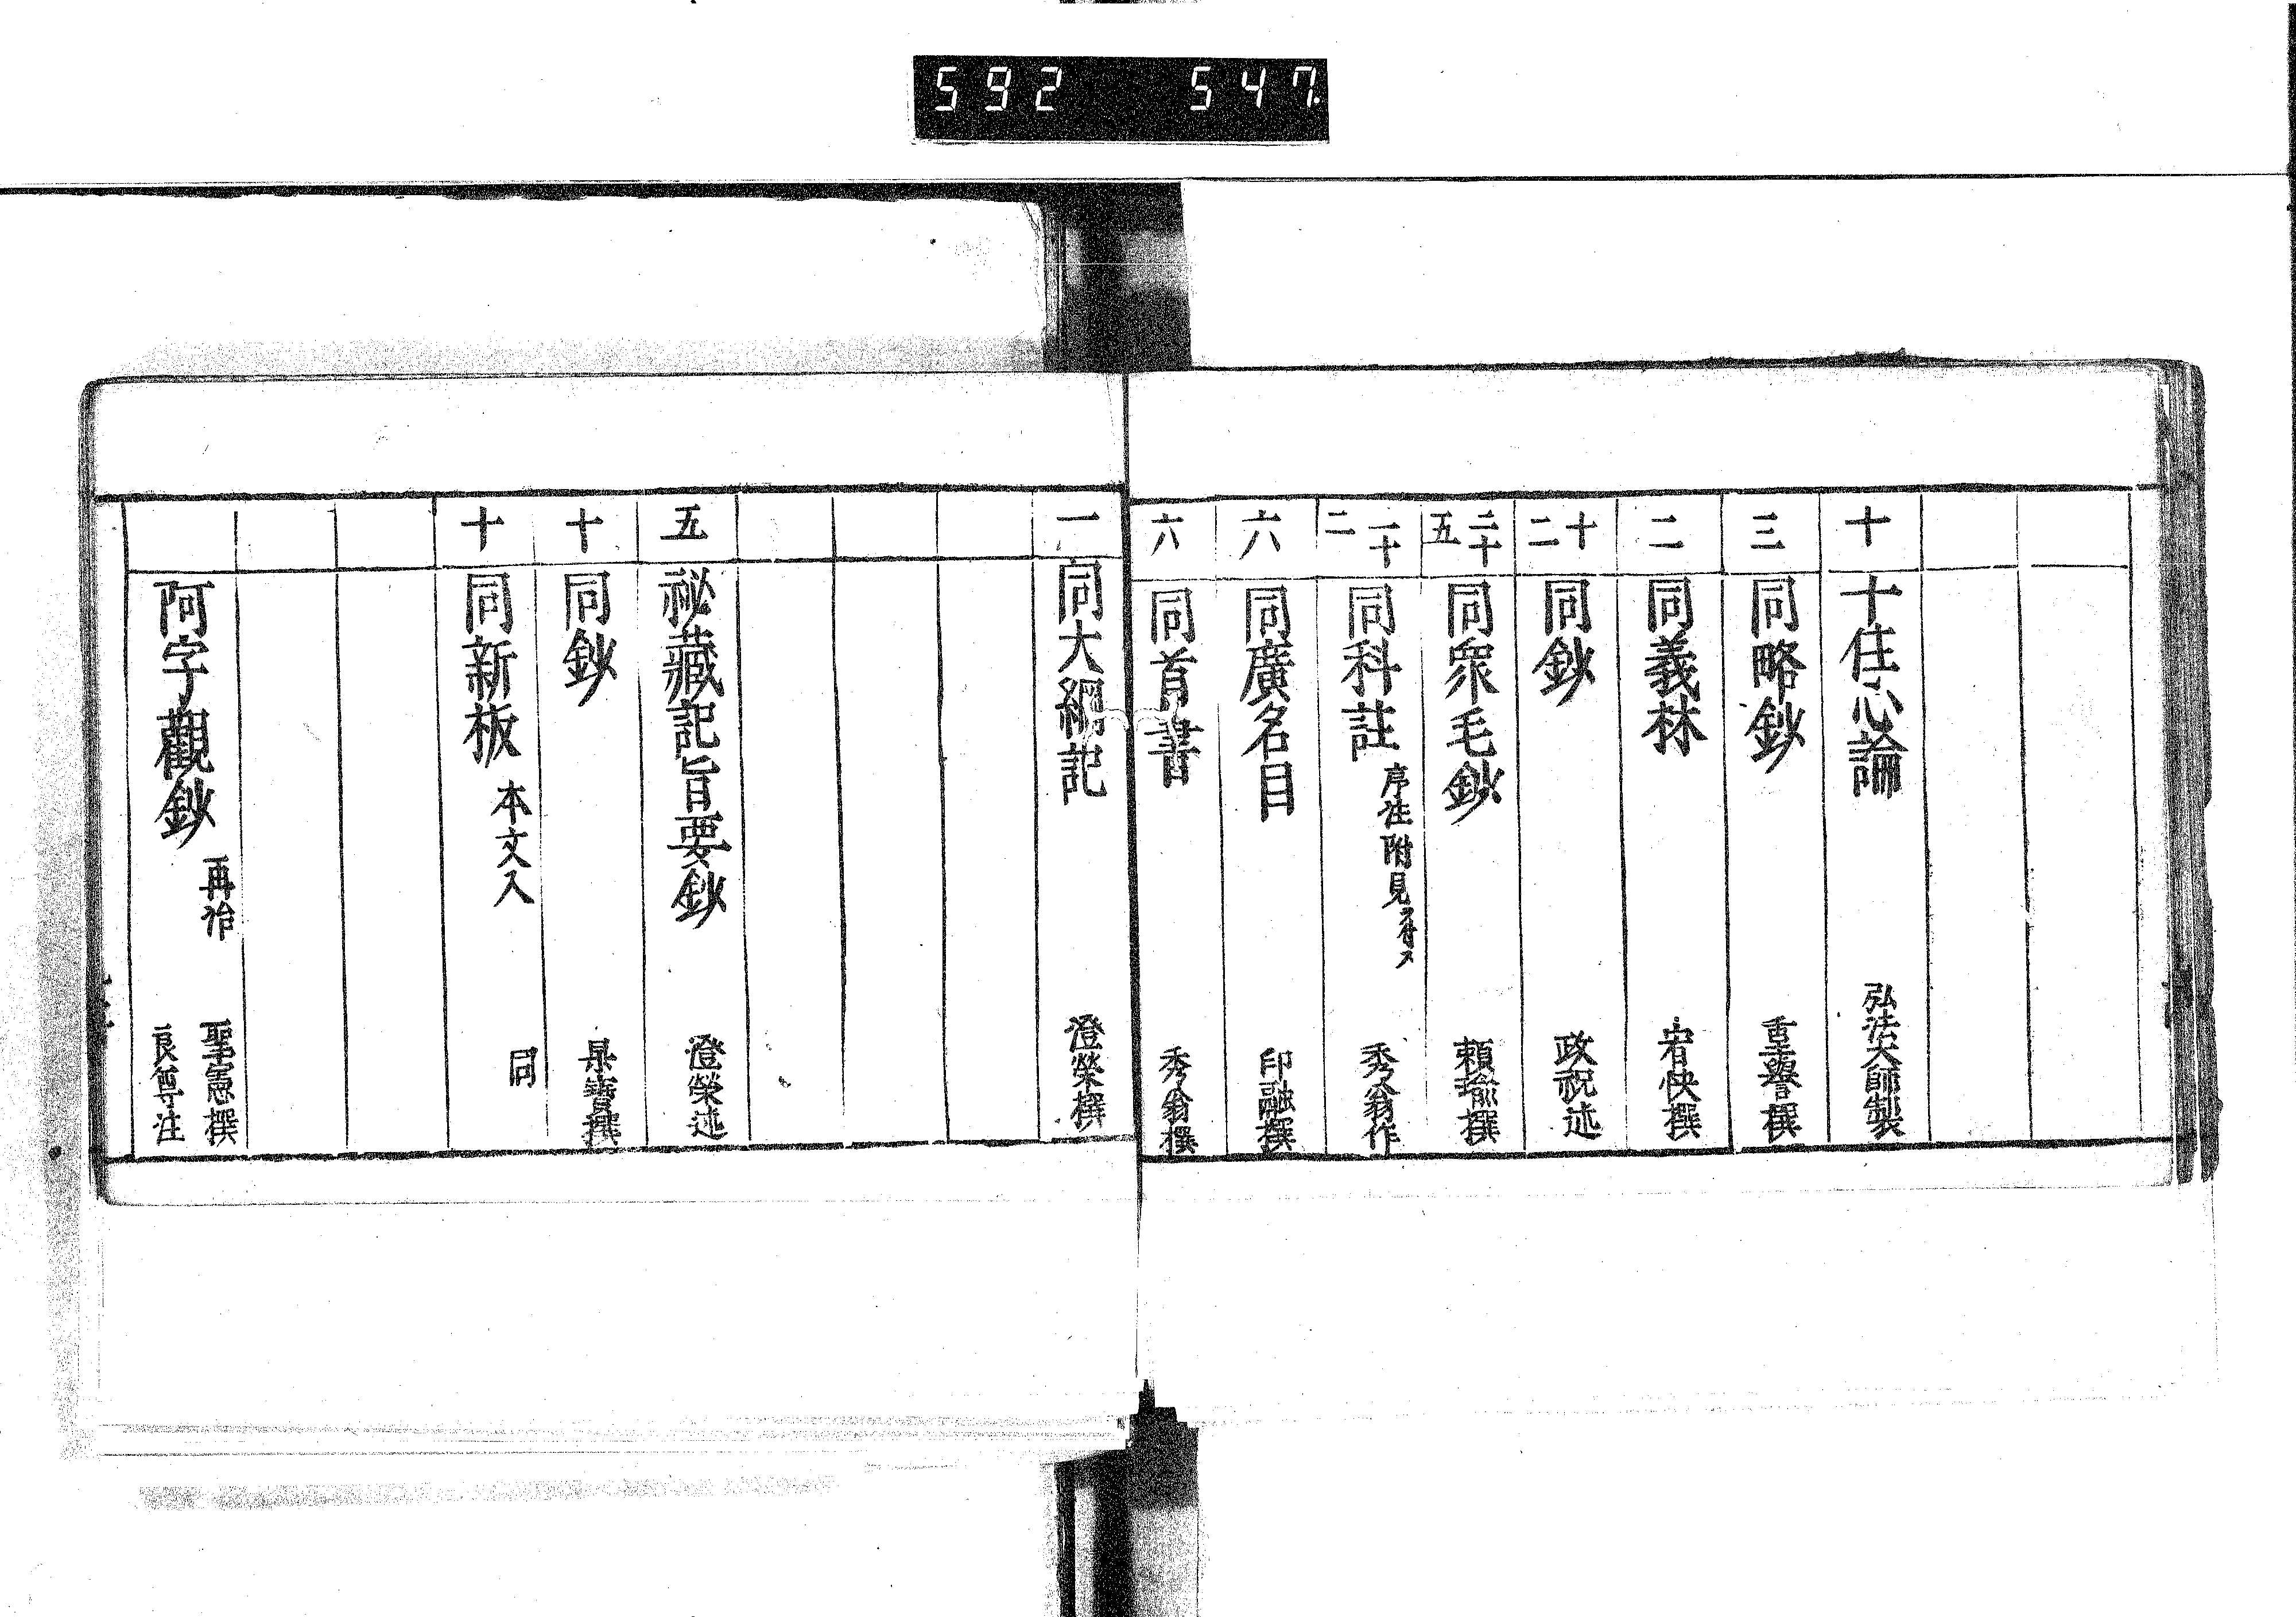 592 547.
十 十住心論 弘法大師製
三 同略鈔 重譽撰
二 同義林 宥快撰
十二 同鈔 政祝述
二十五 同衆毛鈔 頼瑜撰
二十二 同科註 序注附見 秀翁作
六 同廣名目 印融撰
六 同首書 秀翁撰
一 同大綱記 澄榮撰
五 祕藏記旨要鈔 澄榮述
十 同鈔 杲寶撰
十 同新板 本文入 同
阿字觀鈔 再治 聖憲撰 良尊注